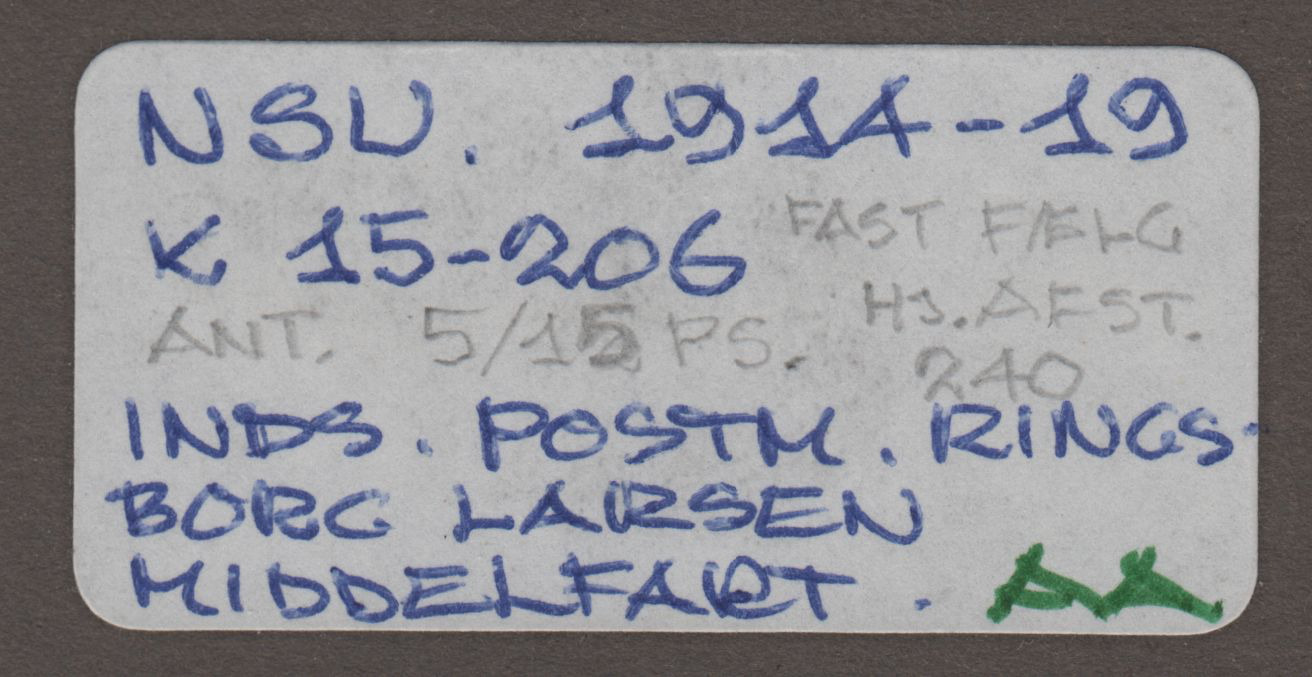 NSU. 1914-19
K 15-206 FAST FÆLG
ANT. 5/15 PS. HJ.AFST.
240
INDS. POSTM. RINGS-
BORG LARSEN
MIDDELFART.